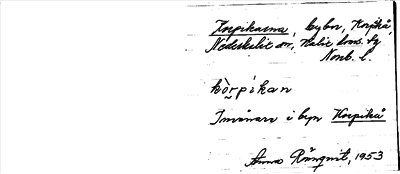 Korpikarna, bybor, Korpikå,
Nederkalix sn, Kalix doms. fg
Norrb. l.
kòrpikan
Invånare i byn Korpikå
Anna Rönqvist, 1953